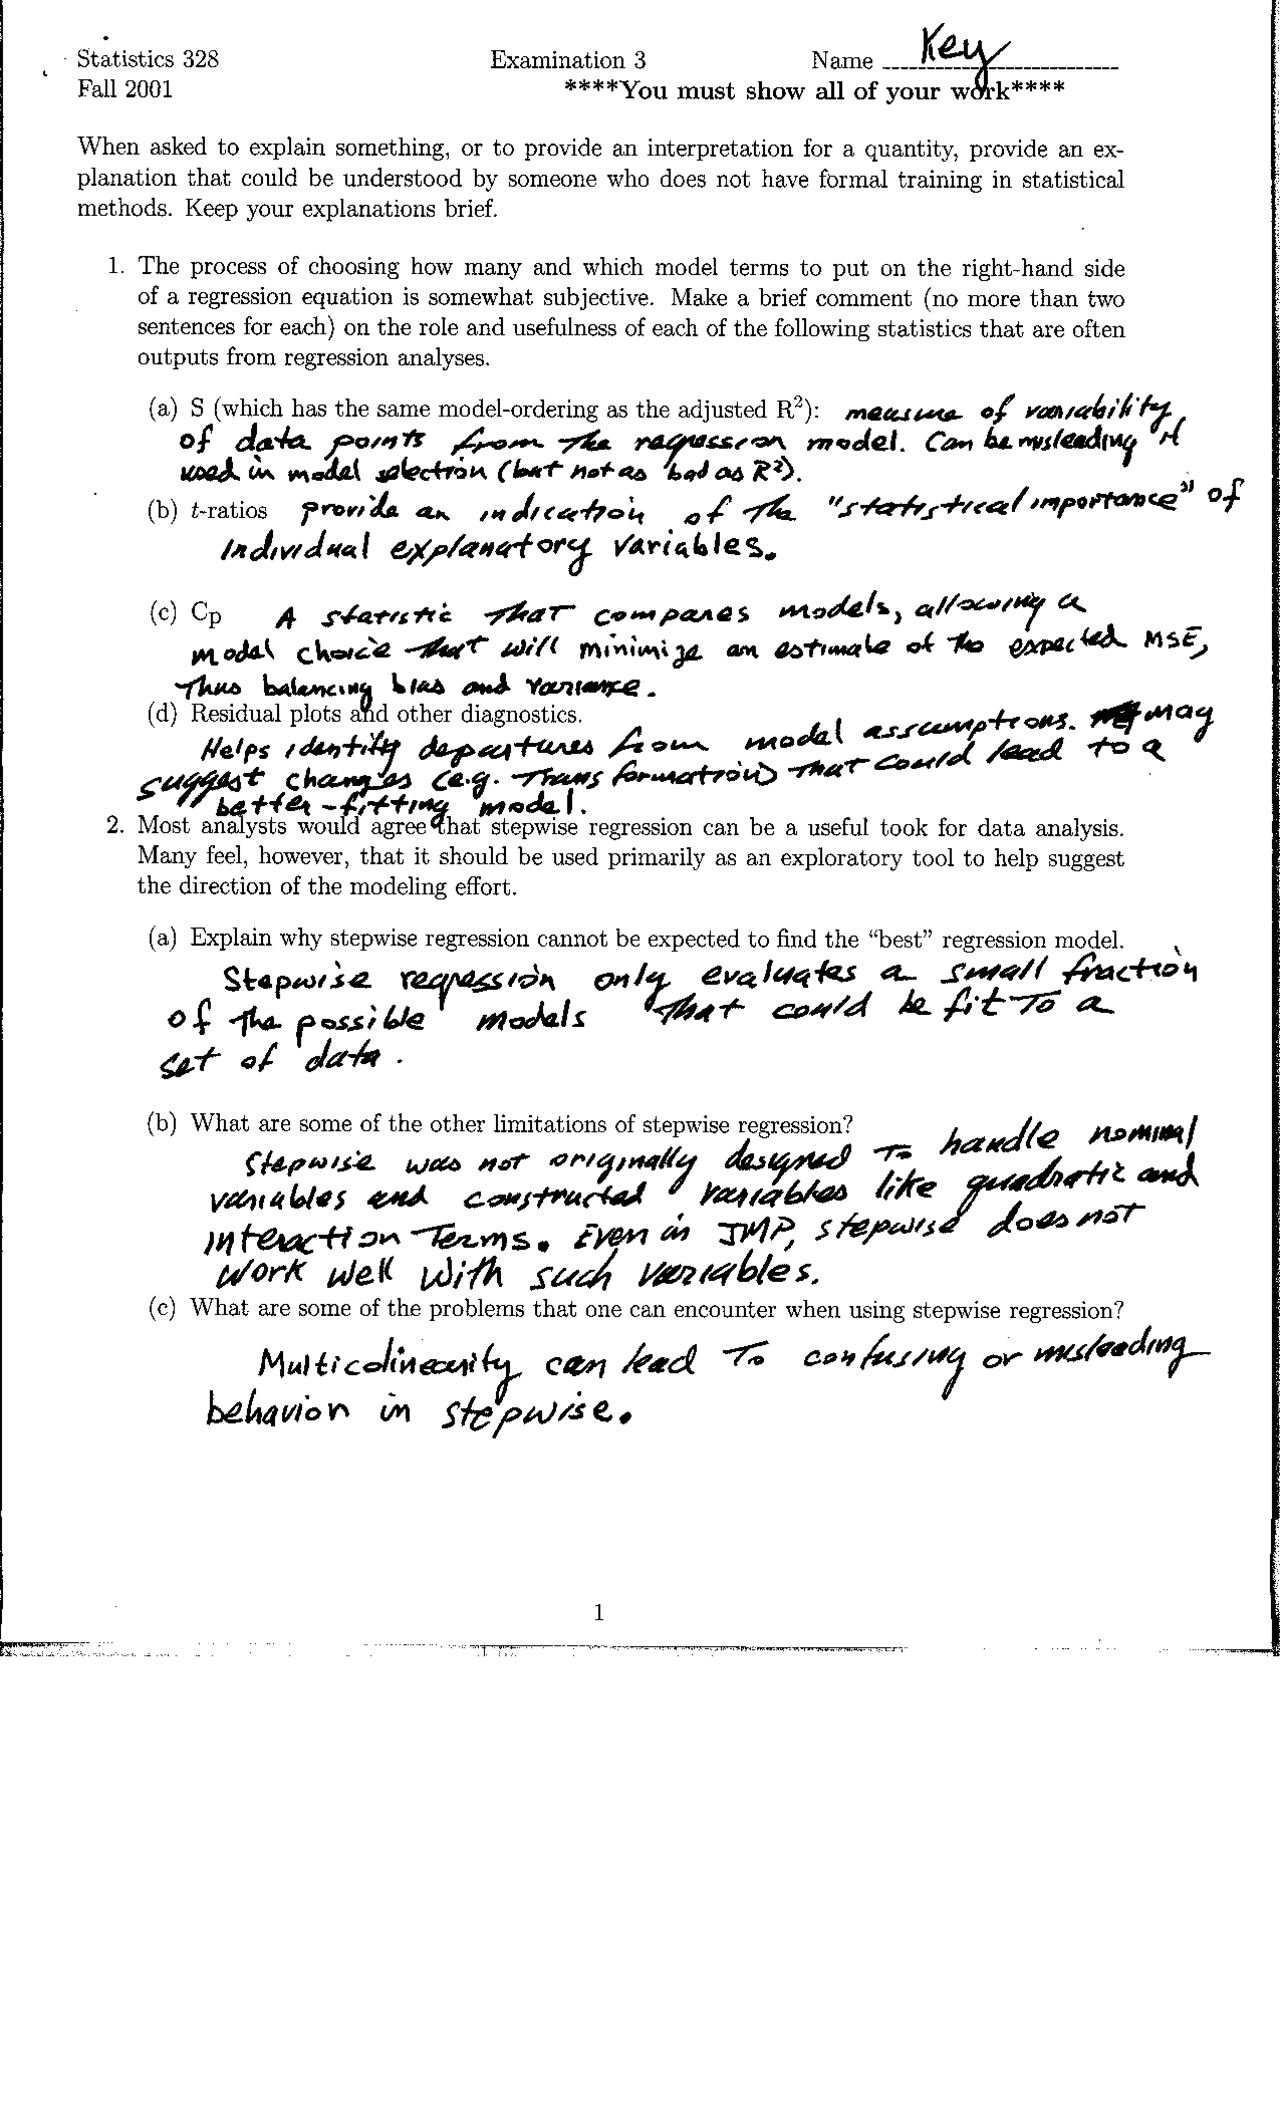 Statistics 328 Examination 3 Name Key
Fall 2001 ****You must show all of your work****
When asked to explain something, or to provide an interpretation for a quantity, provide an ex-
planation that could be understood by someone who does not have formal training in statistical
methods. Keep your explanations brief.
1. The process of choosing how many and which model terms to put on the right-hand side
of a regression equation is somewhat subjective. Make a brief comment (no more than two
sentences for each) on the role and usefulness of each of the following statistics that are often
outputs from regression analyses.
(a) S (which has the same model-ordering as the adjusted R²): measure of variability
of data points from the regression model. Can be misleading if
used in model selection (but not as bad as R²).
(b) t-ratios provide an indication of the "statistical importance" of
individual explanatory variables.
(c) Cp A statistic that compares models, allowing a
model choice that will minimize an estimate of the expected MSE,
thus balancing bias and variance.
(d) Residual plots and other diagnostics.
Helps identify departures from model assumptions. may
suggest changes (e.g. transformation) that could lead to a
better-fitting model.
2. Most analysts would agree that stepwise regression can be a useful took for data analysis.
Many feel, however, that it should be used primarily as an exploratory tool to help suggest
the direction of the modeling effort.
(a) Explain why stepwise regression cannot be expected to find the “best” regression model.
Stepwise regression only evaluates a small fraction
of the possible models that could be fit to a
set of data.
(b) What are some of the other limitations of stepwise regression?
Stepwise was not originally designed to handle nominal
variables and constructed variables like quadratic and
interaction terms. Even in JMP, stepwise does not
work well with such variables.
(c) What are some of the problems that one can encounter when using stepwise regression?
Multicolinearity can lead to confusing or misleading
behavior in stepwise.
1